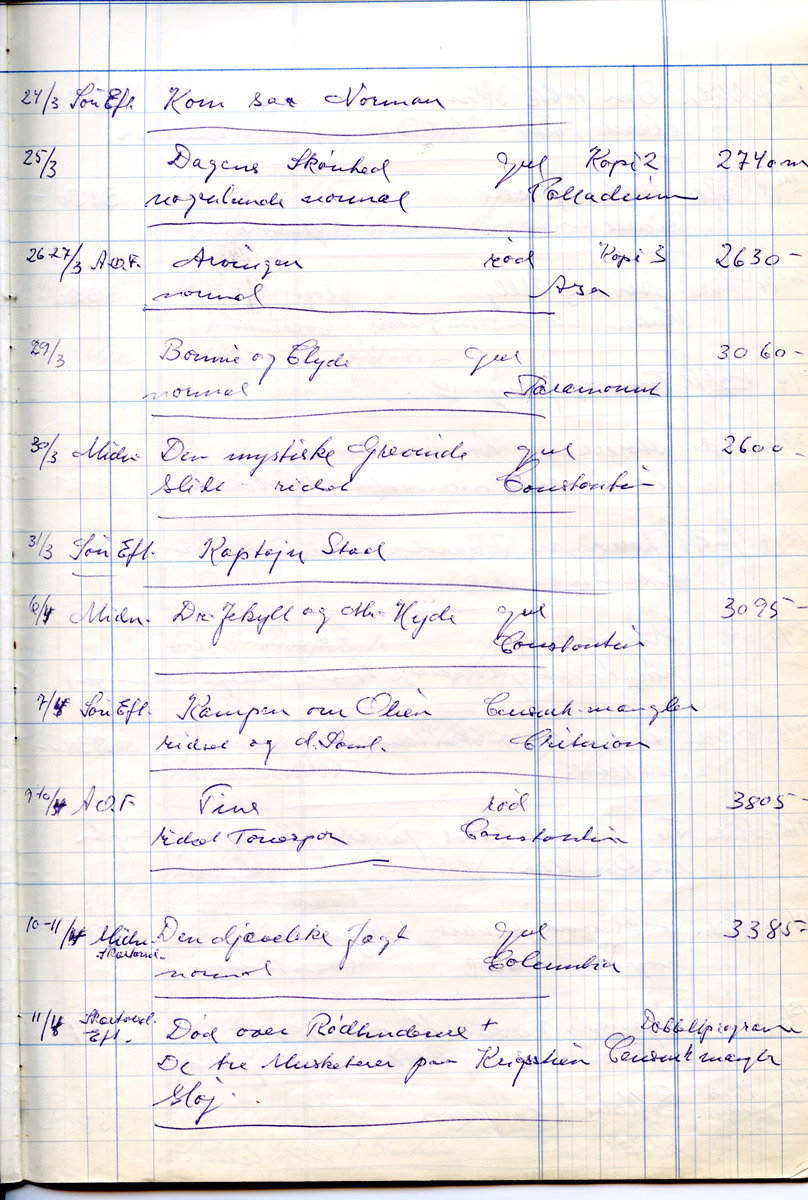 24/3 Søn Eft. Kom saa Norman
25/3 Dagens Skønhed gul Kopi 2 2740 m
nogenlunde normal Palladium
26-27/3 A.O.F. Arvingen rød Kopi 3 2630 -
normal Asa
29/3 Bonnie og Clyde gul 3060 -
normal Paramount
30/3 Midn. Den mystiske Grevinde gul 2600 -
Slidt - ridset Constantin
31/3 Søn Eft. Kaptajn Stad
6/4 Midn. Dr. Jekyll og Mr. Hyde gul 3095 -
Constantin
7/4 Søn Eft. Kampen om Olien Censurk. mangler
ridset og d. Saml. Criterion
9-10/4 A O.F. Tine rød 3805 -
ridset Tonespor Constantin
10-11/4 Midn. Den djævelske Jagt gul 3385 -
Skærtorsd.
normal Columbia
11/4 Skærtorsd. Død over Rødhuderne + Dobbeltprogram
Eft. De tre Musketerer paa Krigsstien Censurk mangler
Sløj.